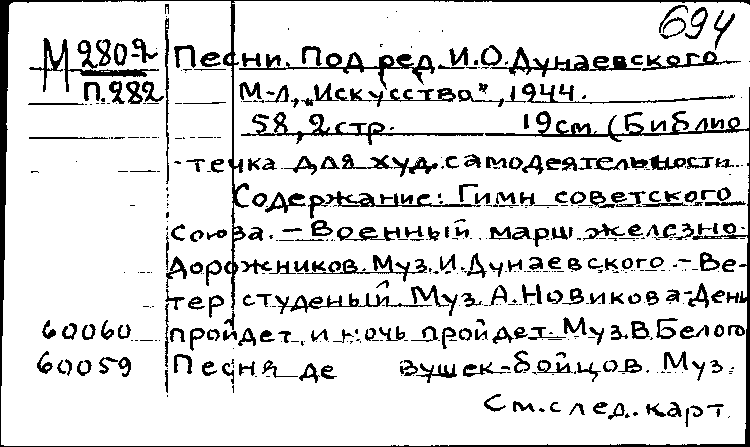 694
М 280-2 Песни. Под ред. И.О.Дунаевского
П.282 М-Л, „Искусство", 1944.
58,2 стр. 19см. (Библио
течка для худ. самодеятельности
Содержание: Гимн советского
Союза. — Военный марш железно-
дорожников. Муз. И. Дунаевского. — Ве-
тер студеный. Муз. А. Новикова - День
60060 пройдет, и ночь пройдет. Муз. В. Белого
60059 Песня де вушек-бойцов. Муз.
См. след. карт.